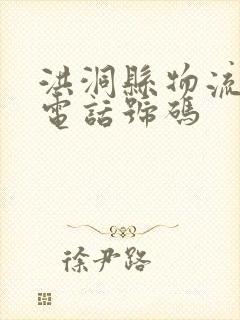 洪洞縣物流
電話號碼
徐尹路